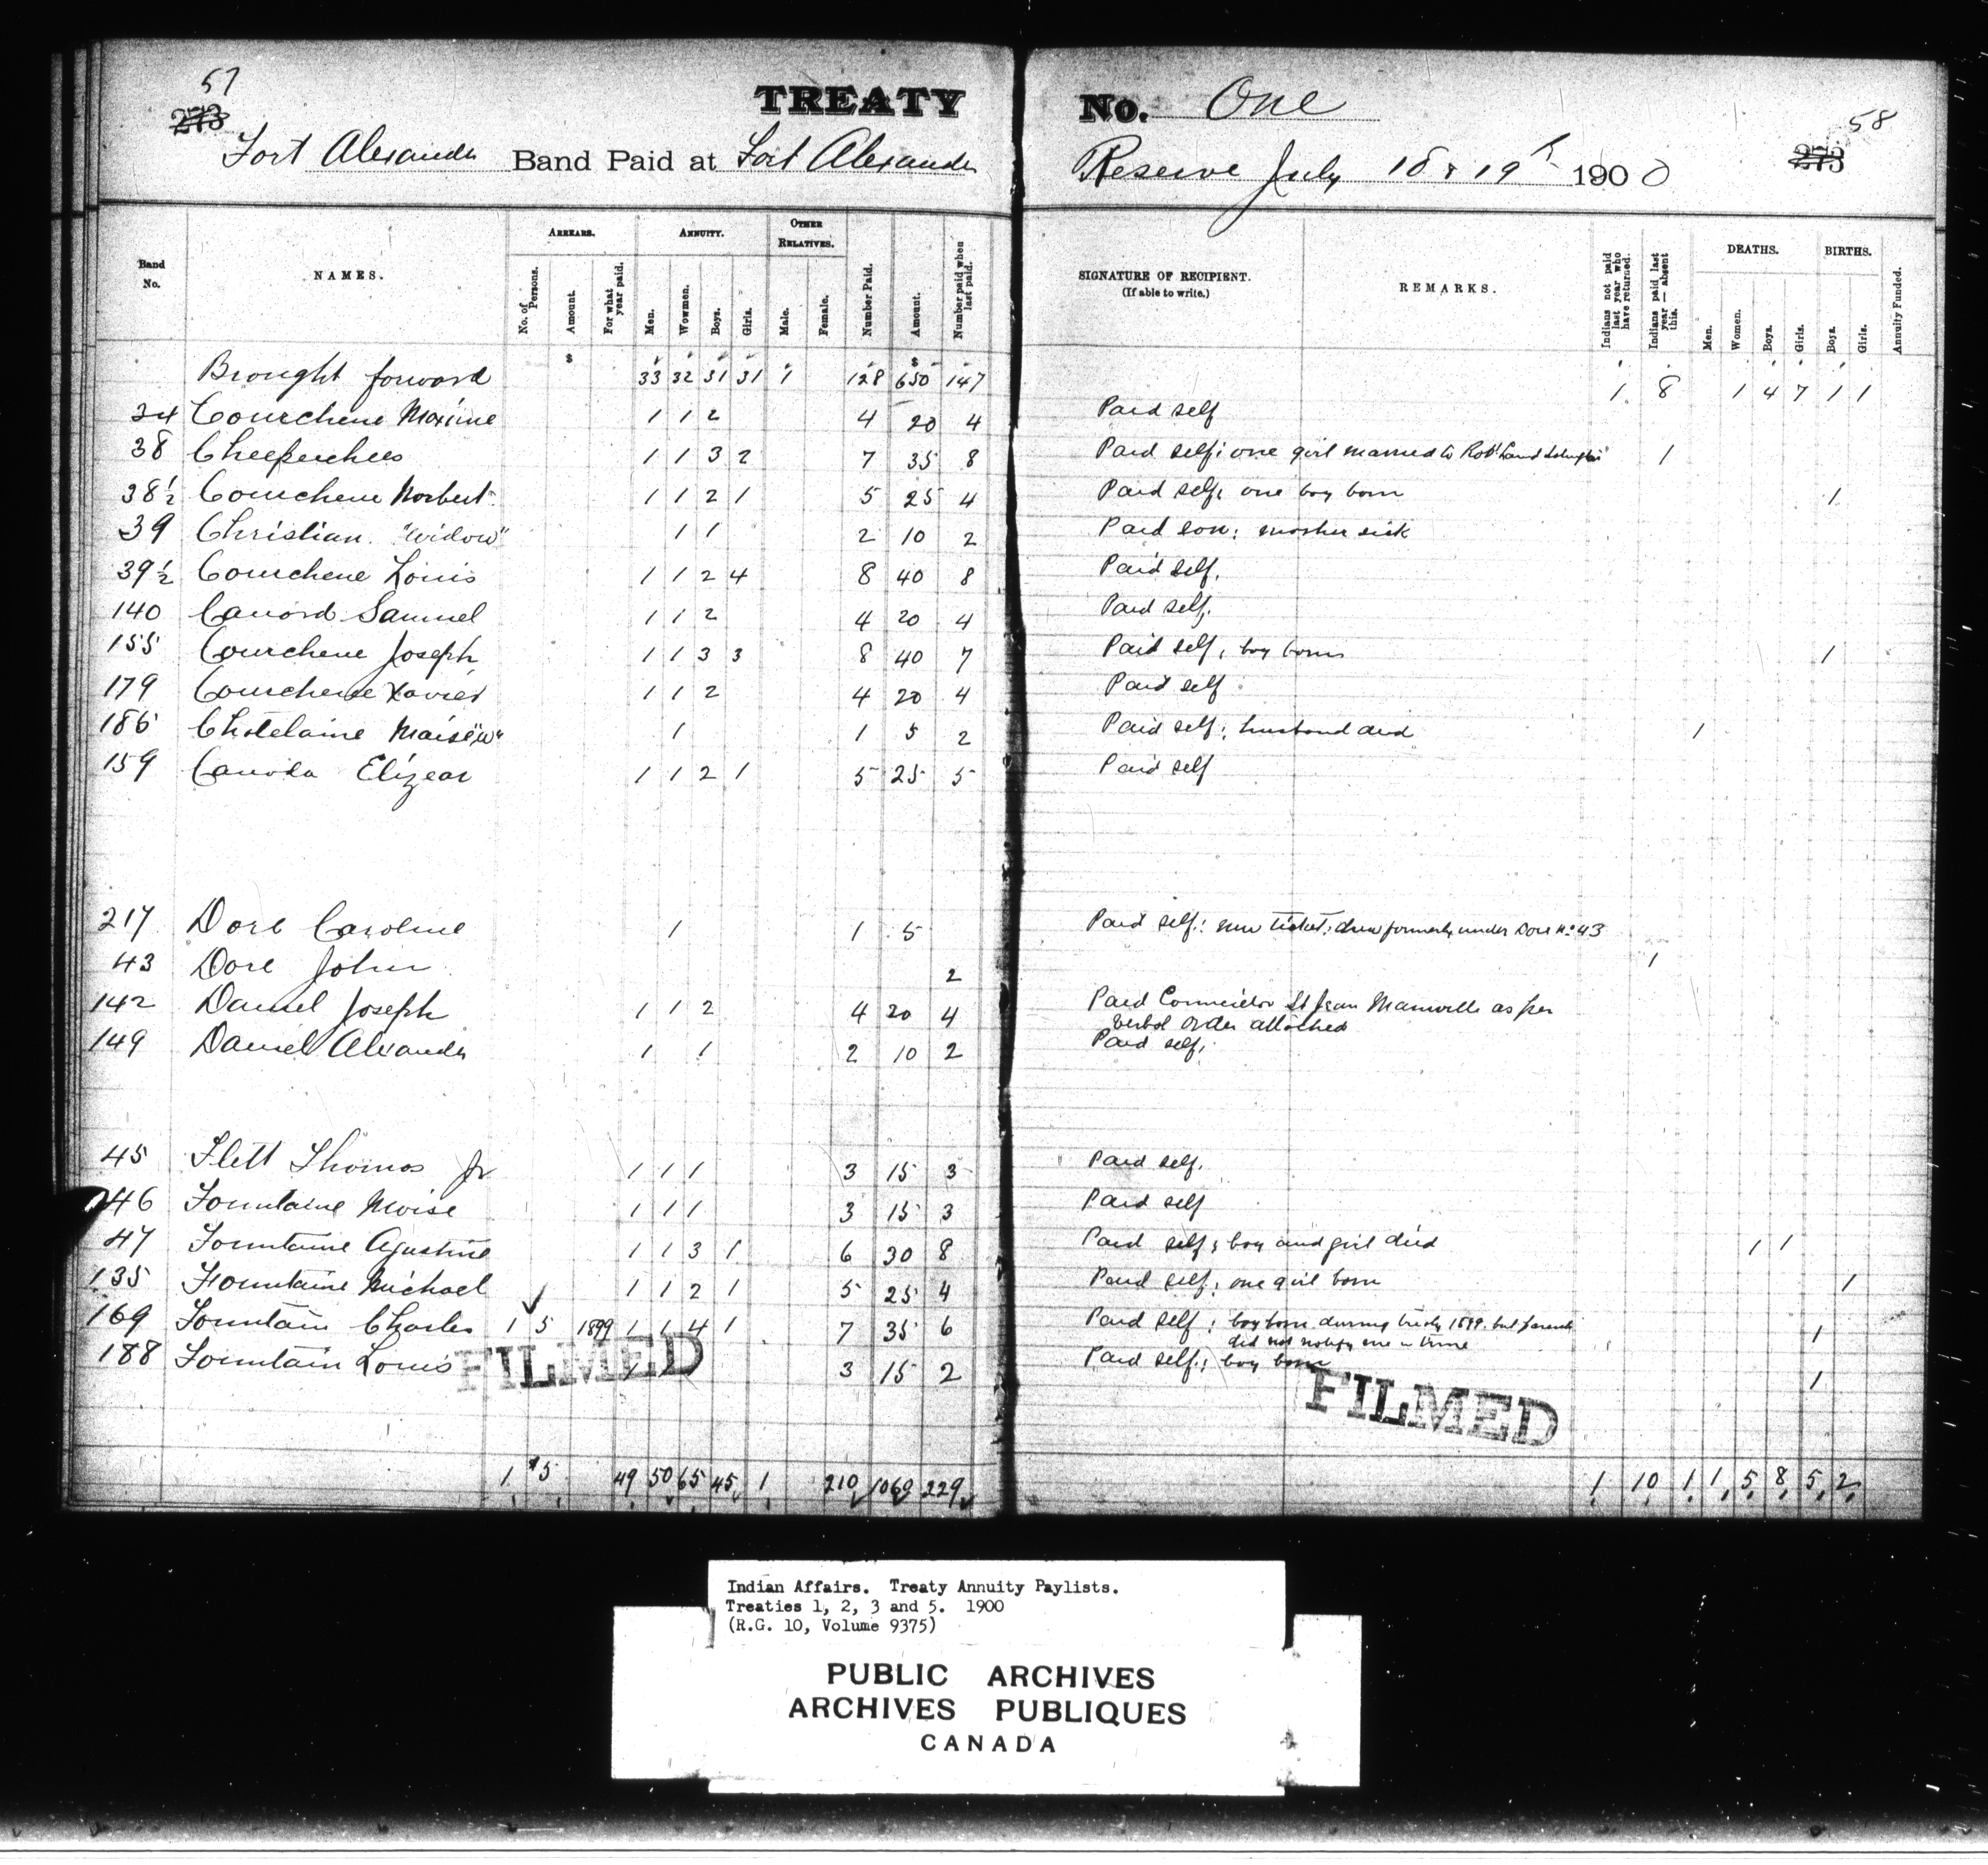 57
273
TREATY No. One
58
273
Fort Alexander Band Paid at Fort Alexander Reserve July 18 & 19th 1900
Band No. NAMES. ARREARS. No. of Persons. Amount. For what year paid. ANNUITY. Men. Wowmen. Boys. Girls. OTHER RELATIVES. Male. Female. Number Paid. Amount. Number paid when last paid. SIGNATURE OF RECIPIENT. (If able to write.) REMARKS. Indians not paid last year who have returned. Indians paid last year — absent this. DEATHS. Men. Women. Boys. Girls. BIRTHS. Boys. Girls. Annuity Funded.
$ $
Brought forward 33 32 31 31 1 128 650 147 1 8 1 4 7 1 1
34 Courchene Maxime 1 1 2 4 20 4 Paid self
38 Cheepeechees 1 1 3 2 7 35 8 Paid self; one girl married to Robt 1
38½ Courchene Norbert 1 1 2 1 5 25 4 Paid self, one boy born 1
39 Christian "Widow" 1 1 2 10 2 Paid son; mother sick
39½ Courchene Louis 1 1 2 4 8 40 8 Paid self.
140 Canord Samuel 1 1 2 4 20 4 Paid self.
155 Courchene Joseph 1 1 3 3 8 40 7 Paid self, boy born 1
179 Courchene Xavier 1 1 2 4 20 4 Paid self
186 Chatelaine "W" 1 1 5 2 Paid self; husband died 1
159 Canoda Elizear 1 1 2 1 5 25 5 Paid self
217 Dore Caroline 1 1 5 Paid self: new ticket; drew formerly under Dore No 43
43 Dore John 2 1
142 Daniel Joseph 1 1 2 4 20 4 Paid Councillor St Jean Manwille as per
verbal order attached
149 Daniel Alexander 1 1 2 10 2 Paid self,
45 Flett Thomas Jr 1 1 1 3 15 3 Paid self.
46 Fountaine Moise 1 1 1 3 15 3 Paid self
47 Fountaine Agustine 1 1 3 1 6 30 8 Paid self; boy and girl died 1 1
135 Fountaine Michael 1 1 2 1 5 25 4 Paid self; one girl born 1
169 Fountain Charles 1 5 1899 1 1 4 1 7 35 6 Paid self; boy born during treaty 1899 but parents
did not notify me in time 1
188 Fountain Louis 3 15 2 Paid self; boy born 1
FILMED FILMED
1 $5 49 50 65 45 1 210 1060 229 1 10 1 1 5 8 5 2
Indian Affairs. Treaty Annuity Paylists.
Treaties 1, 2, 3 and 5. 1900
(R.G. 10, Volume 9375)
PUBLIC ARCHIVES
ARCHIVES PUBLIQUES
CANADA